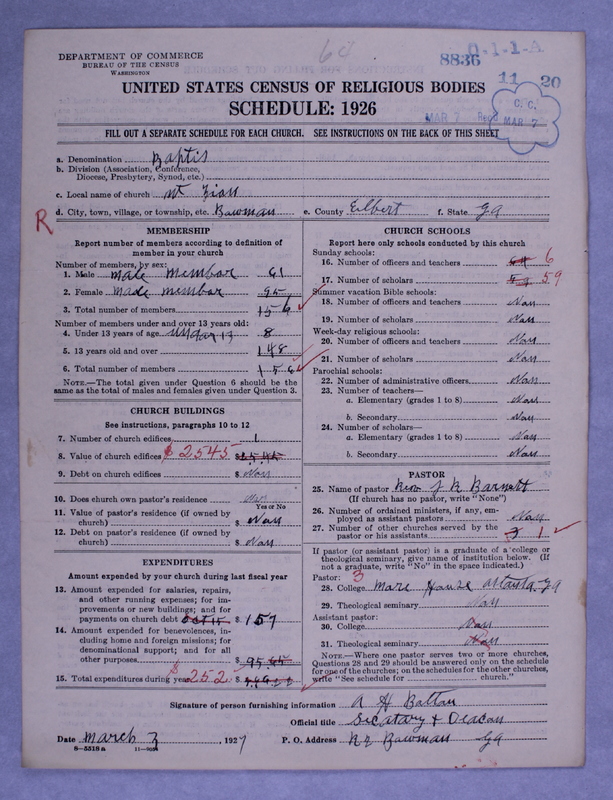 60
DEPARTMENT OF COMMERCE
BUREAU OF THE CENSUS
WASHINGTON
8836
0-1-1-A
11 20
UNITED STATES CENSUS OF RELIGIOUS BODIES
SCHEDULE: 1926
MAR 7 Recd
C. C.
MAR 7
FILL OUT A SEPARATE SCHEDULE FOR EACH CHURCH. SEE INSTRUCTIONS ON THE BACK OF THIS SHEET
a. Denomination Baptis
b. Division (Association, Conference,
Diocese, Presbytery, Synod, etc.)
c. Local name of church Mt Zion
R
d. City, town, village, or township, etc. Bowman e. County Elbert f. State Ga
MEMBERSHIP
Report number of members according to definition of
member in your church
Number of members, by sex:
1. Male male member 61
2. Female made member 95
3. Total number of members 156
Number of members under and over 13 years old:
4. Under 13 years of age unday 13 8
5. 13 years old and over 148
6. Total number of members 156
NOTE.—The total given under Question 6 should be the
same as the total of males and females given under Question 3.
CHURCH BUILDINGS
See instructions, paragraphs 10 to 12
7. Number of church edifices 1
8. Value of church edifices $2545 $
9. Debt on church edifices $ Non
10. Does church own pastor's residence
Yes or No
11. Value of pastor's residence (if owned by
church) $ Non
12. Debt on pastor's residence (if owned by
church) $ Non
EXPENDITURES
Amount expended by your church during last fiscal year
13. Amount expended for salaries, repairs,
and other running expenses; for im-
provements or new buildings; and for
payments on church debt $ 157
14. Amount expended for benevolences, in-
cluding home and foreign missions; for
denominational support; and for all
other purposes $ 95.
15. Total expenditures during year $252 $
CHURCH SCHOOLS
Report here only schools conducted by this church
Sunday schools:
16. Number of officers and teachers 6
17. Number of scholars 59 59
Summer vacation Bible schools:
18. Number of officers and teachers Non
19. Number of scholars Non
Week-day religious schools:
20. Number of officers and teachers Non
21. Number of scholars Non
Parochial schools:
22. Number of administrative officers Non
23. Number of teachers—
a. Elementary (grades 1 to 8) Non
b. Secondary Non
24. Number of scholars—
a. Elementary (grades 1 to 8) Non
b. Secondary Non
PASTOR
25. Name of pastor Rev J R Barnett
(If church has no pastor, write "None")
26. Number of ordained ministers, if any, em-
ployed as assistant pastors Non
27. Number of other churches served by the
pastor or his assistants 3 1
If pastor (or assistant pastor) is a graduate of a college or
theological seminary, give name of institution below. (If
not a graduate, write "No" in the space indicated.)
Pastor: 3
28. College More House Atlanta Ga
29. Theological seminary Non
Assistant pastor:
30. College Non
31. Theological seminary Non
NOTE.—Where one pastor serves two or more churches,
Questions 28 and 29 should be answered only on the schedule
for one of the churches; on the schedules for the other churches,
write "See schedule for church."
Signature of person furnishing information A H Battau
Official title Secatary & Deacon
Date March 3, 1927 P. O. Address Bowman Ga
8—5518a